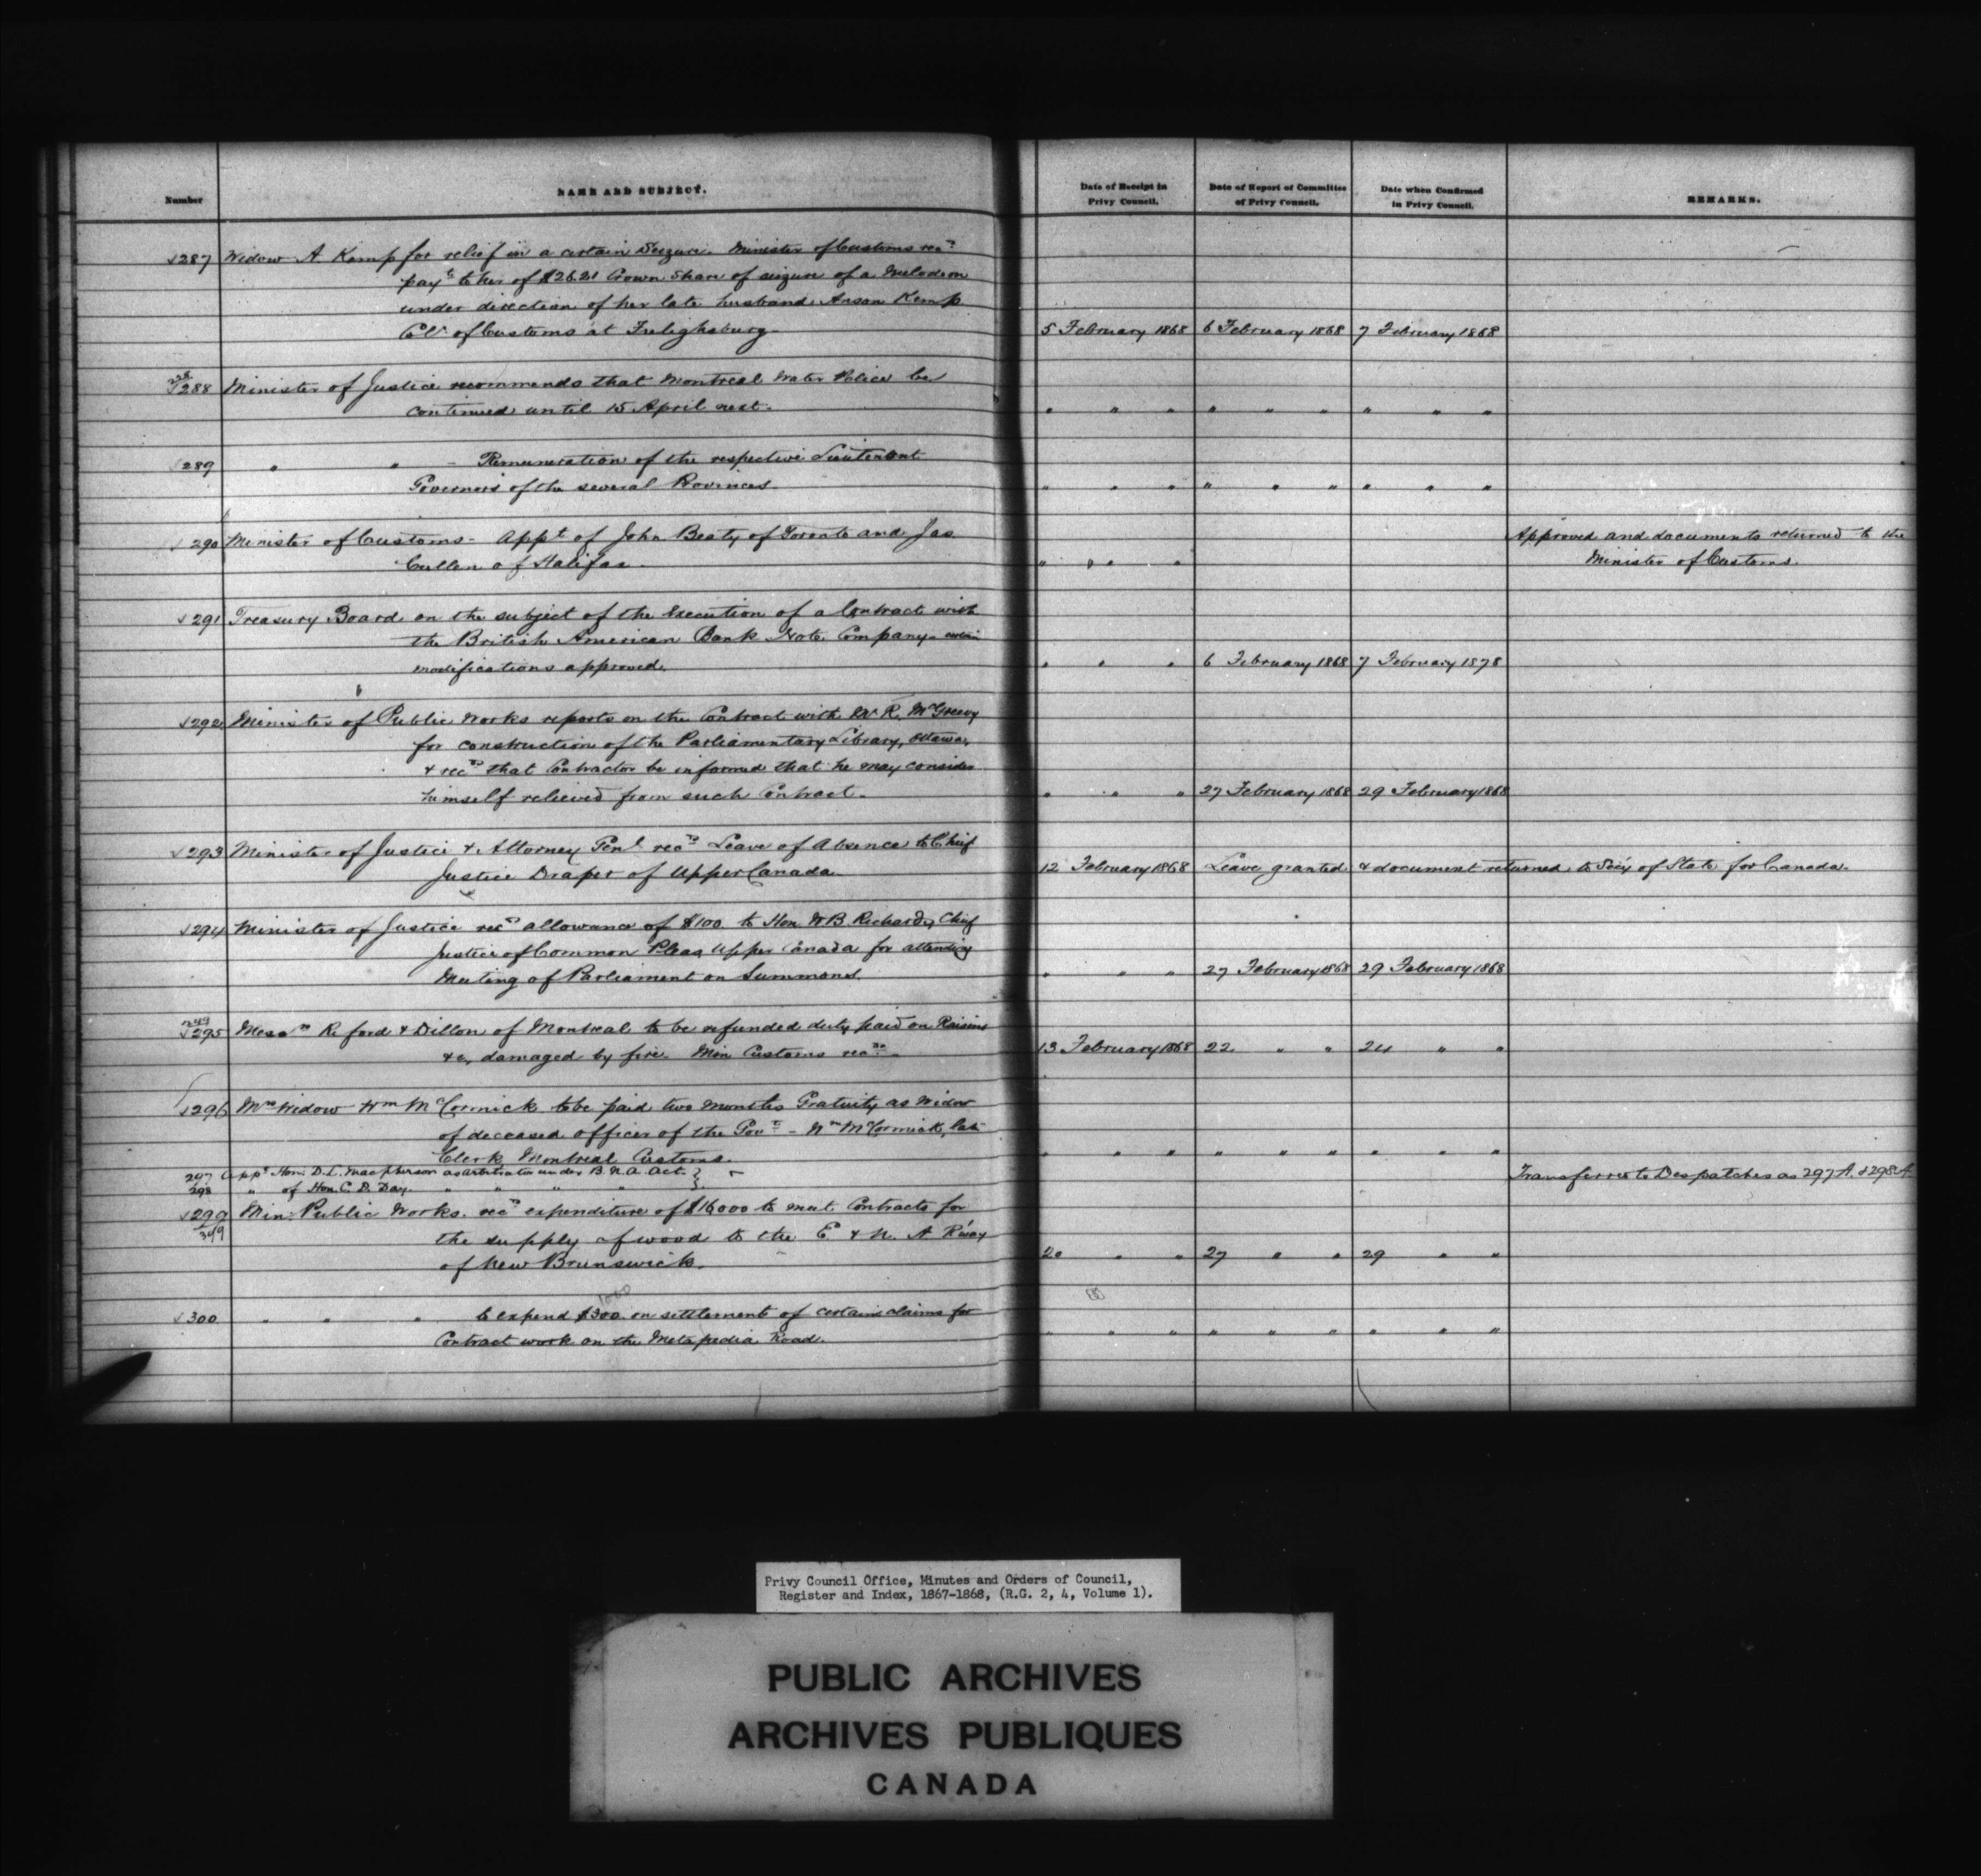 Number
NAME AND SUBJECT.
Date of Receipt in
Privy Council.
Date of Report of Committee
of Privy Council.
Date when Confirmed
in Privy Council.
REMARKS.
287 Widow A. Kemp for relief in a certain Seizure. Minister of Customs recds
payt to her of $26.21 Crown Share of seizure of a Melodeon
under direction of her late husband Anson Kemp
Colr of Customs at Frelighsburg 5 February 1868 6 February 1868 7 February 1868
288 Minister of Justice recommends that Montreal Water Police be
continued until 15 April next. " " " " " " " " "
289 " " - Remuneration of the respective Lieutenant
Governors of the several Provinces. " " " " " " " " "
290 Minister of Customs - Appt of John Beaty of Toronto and Jas Approved and documents returned to the
Cullen of Halifax. " " " Minister of Customs.
291 Treasury Board on the subject of the Execution of a Contract with
the British American Bank Note Company - certain
modifications approved. " " " 6 February 1868 7 February 1878
292 Minister of Public Works reports on the Contract with Mr R. McGreevy
for construction of the Parliamentary Library, Ottawa,
& recds that Contractor be informed that he may consider
himself relieved from such Contract. " " " 27 February 1868 29 February 1868
293 Minister of Justice & Attorney Genl recds Leave of Absence to Chief
Justice Draper of Upper Canada 12 February 1868 Leave granted & document returned to Secy of State for Canada.
294 Minister of Justice recds allowance of $100 to Hon. W B. Richards, Chief
Justice of Common Pleas Upper Canada for attending
Meeting of Parliament on Summons. " " " 27 February 1868 29 February 1868
249
295 Messrs Reford & Dillon of Montreal to be refunded duty paid on Raisins
&c, damaged by fire. Min Customs recds - 13 February 1868 22 " " 24 " "
296 Mrs Widow Wm McCormick to be paid two months Gratuity as Widow
of deceased officer of the Govt - Wm McCormick, late
Clerk Montreal Customs. " " " " " " " " "
297 Appt Hon. D. L. Macpherson as arbitrator under B. N. A. Act. } -
298 " of Hon. C. D. Day. " " " " } Transferred to Despatches as 297 A. & 298 A.
299 Min: Public Works. recds expenditure of $16000 to meet Contracts for
349 the supply of wood to the E & N. A R'way
of New Brunswick. 20 " " 27 " " 29 " "
1000
300 " " " to expend $300 on settlement of certain claims for
Contract work on the Metapedia Road. " " " " " " " " "
Privy Council Office, Minutes and Orders of Council,
Register and Index, 1867-1868, (R.G. 2, 4, Volume 1).
PUBLIC ARCHIVES
ARCHIVES PUBLIQUES
CANADA